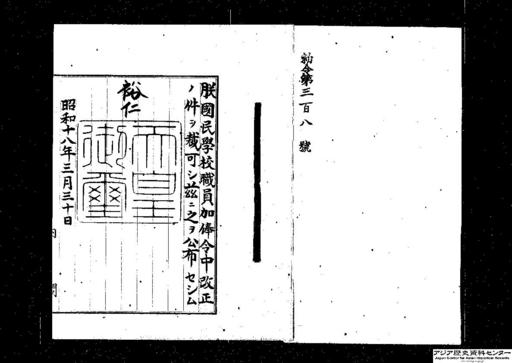 勅令第三百八號
朕國民學校職員加俸令中改正
ノ件ヲ裁可シ茲ニ之ヲ公布セシム
裕仁
天皇
御璽
昭和十八年三月三十日
内閣
アジア歴史資料センター
Japan Center for Asian Historical Records